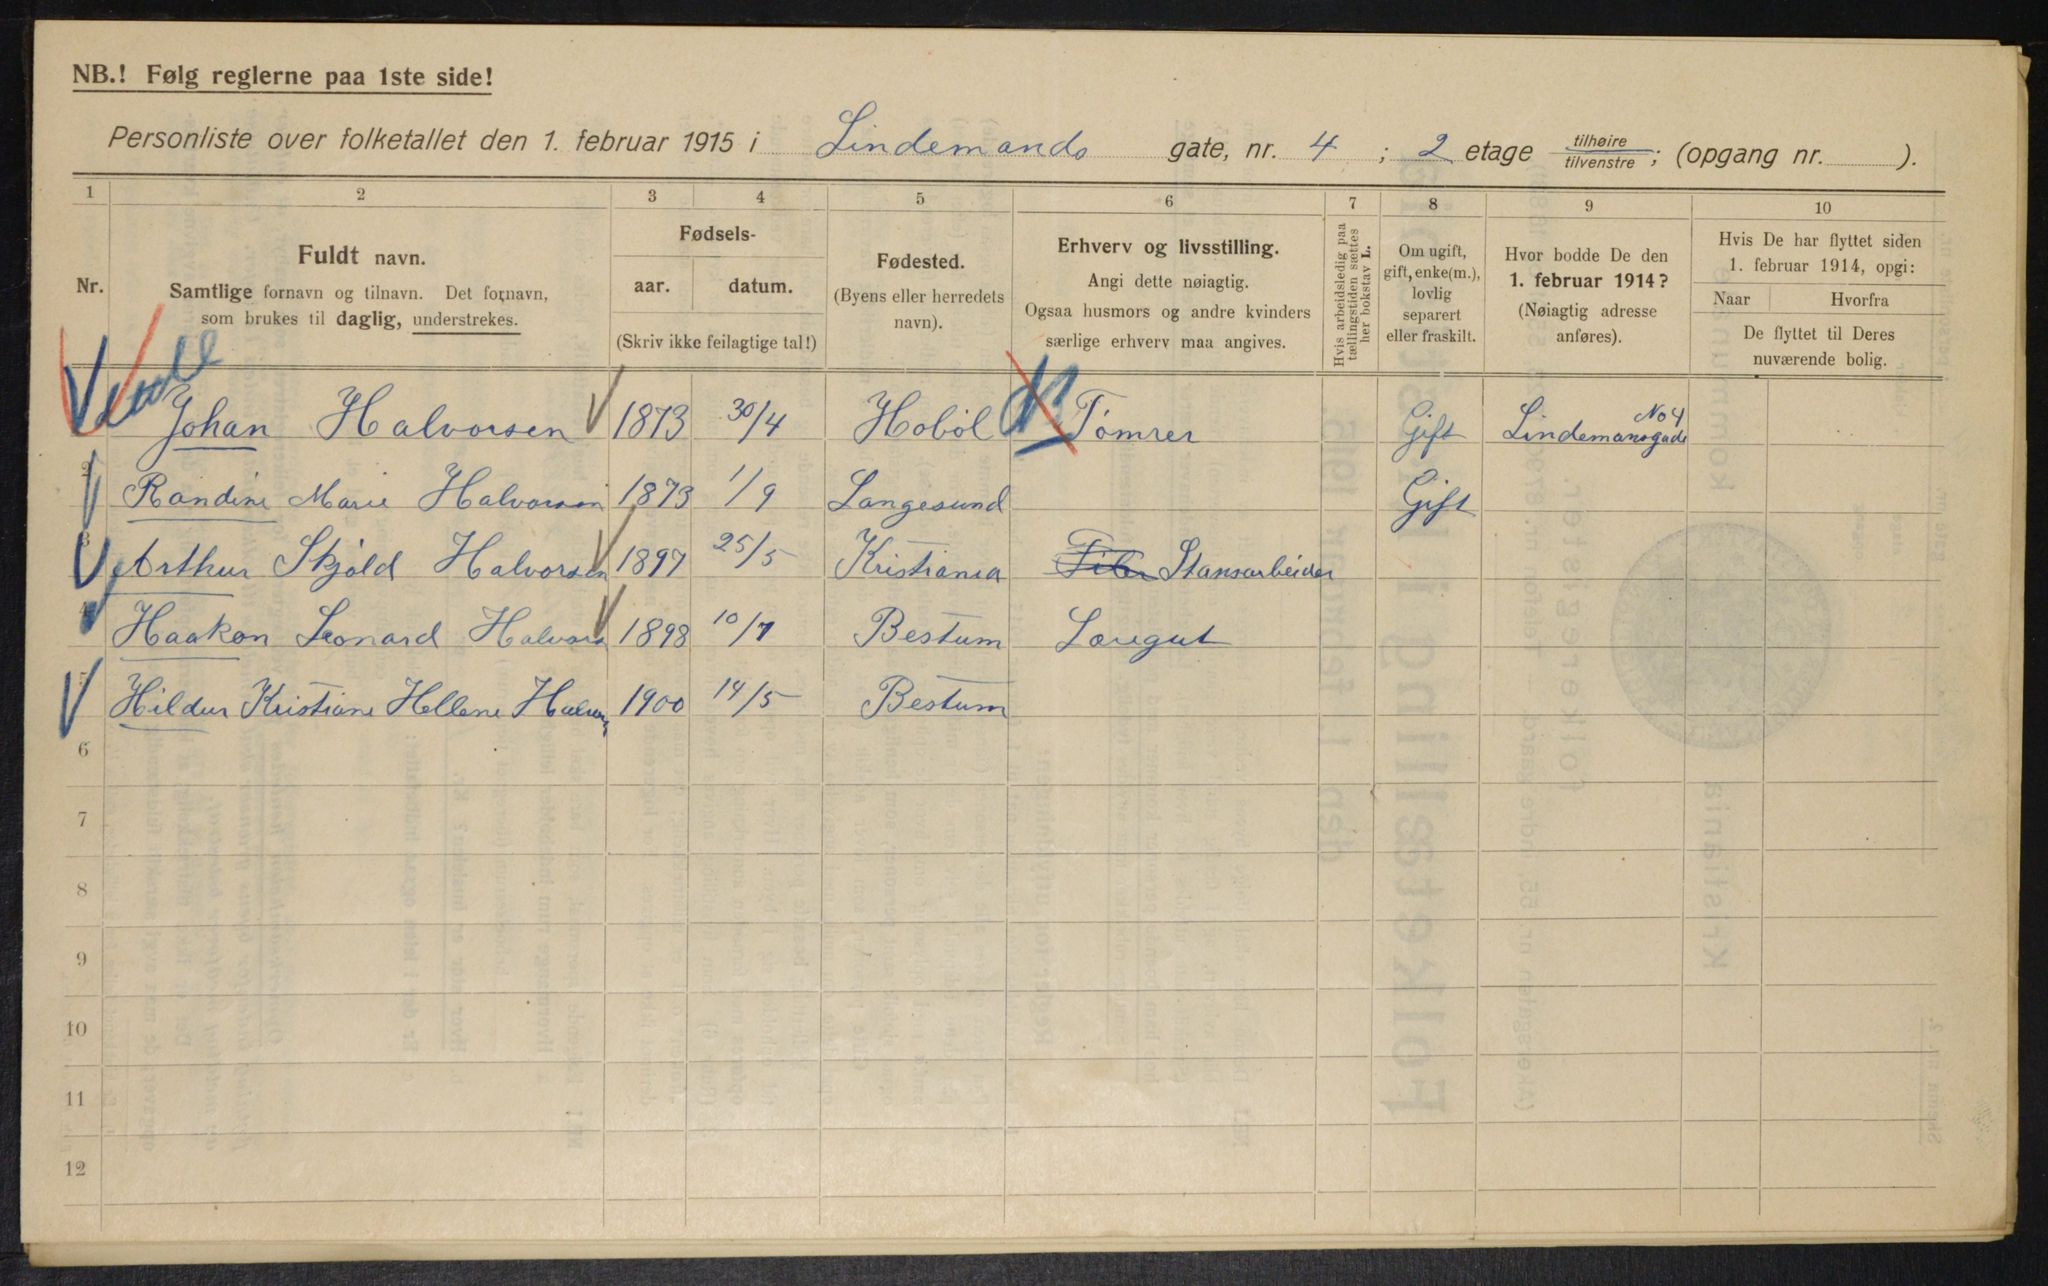 NB.! Følg reglerne paa 1ste side!
Personliste over folketallet den 1. februar 1915 i Lindemands gate, nr. 4 ; 2 etage tilhøire/tilvenstre; (opgang nr. ).
1 2 3 4 5 6 7 8 9 10
Nr.
Fuldt navn.
Samtlige fornavn og tilnavn. Det fornavn,
som brukes til daglig, understrekes.
Fødsels-
aar. datum.
(Skriv ikke feilagtige tal!)
Fødested.
(Byens eller herredets
navn).
Erhverv og livsstilling.
Angi dette nøiagtig.
Ogsaa husmors og andre kvinders
særlige erhverv maa angives.
Hvis arbeidsledig paa
tællingstiden sættes
her bokstav L.
Om ugift,
gift, enke(m.),
lovlig
separert
eller fraskilt.
Hvor bodde De den
1. februar 1914?
(Nøiagtig adresse
anføres).
Hvis De har flyttet siden
1. februar 1914, opgi:
Naar Hvorfra
De flyttet til Deres
nuværende bolig.
Johan Halvorsen 1873 30/4 Hobøl Tømrer Gift Lindemansgade No 4
2 Randine Marie Halvorsen 1873 1/9 Langesund Gift
3 Arthur Skjøld Halvorsen 1897 25/5 Kristiania Stansarbeider
4 Haakon Leonard Halvors 1898 10/7 Bestum Læregut
5 Hildur Kristiane Hellene Halvors 1900 14/5 Bestum
6
7
8
9
10
11
12